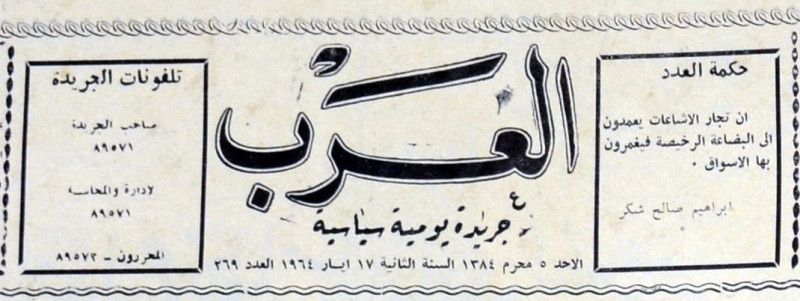 حكمة العدد
ان تجار الاشاعات يعمدون
الى البضاعة الرخيصة فيغمرون
بها الاسواق .
ابراهيم صالح شكر
العرب
جريدة يومية سياسية
الاحد ٥ محرم ١٣٨٤ السنة الثانية ١٧ ايار ١٩٦٤ العدد ٢٦٩
تلفونات الجريدة
صاحب الجريدة
٨٩٥٧١
لادارة والمحاسبة
٨٩٥٧١
المحررون - ٨٩٥٧٢